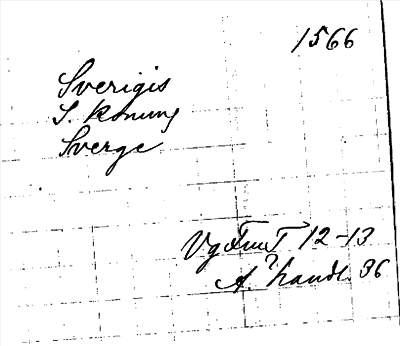 1566
Sverigis
S. Konung
Sverge
VgFmT 12-13
A. ? handl. 36